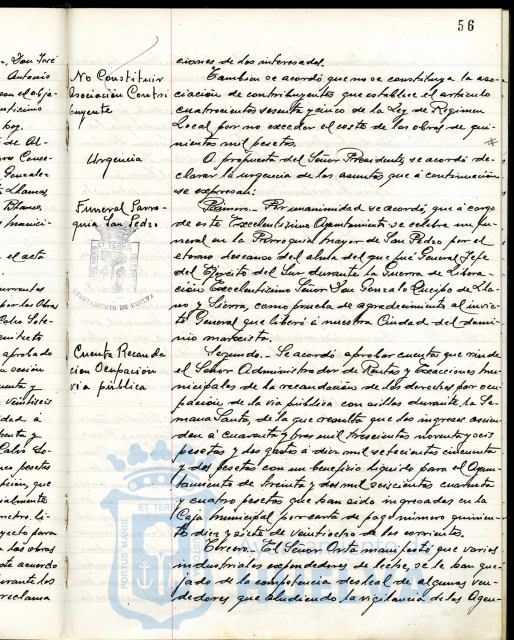 56
No Constituir
Asociación Contri
buyente
Urgencia
Funeral Parro-
quia San Pedro
AYUNTAMIENTO DE HUELVA
Cuenta Recauda
cion Ocupación
via pública
ciones de los interesados.
Tambien se acordó que no se constituya la aso-
ciación de contribuyentes que establece el articulo
cuatrocientos sesenta y cinco de la Ley de Regimen
Local por no exceder el costo de las obras de qui-
nientas mil pesetas.
A propuesta del Señor Presidente, se acordó de-
clarar la urgencia de los asuntos que á continuación
se expresan:
Primero.- Por unanimidad se acordó, que á cargo
de este Excelentisimo Ayuntamiento se celebre un fu-
neral en la Parroquia Mayor de San Pedro, por el
eterno descanso del alma del que fué General Jefe
del Ejército del Sur durante la Guerra de Libera-
ción Excelentisimo Señor Don Gonzalo Queipo de Lla-
no y Sierra, como prueba de agradecimiento al invic-
to General que liberó á nuestra Ciudad del domi-
nio marxista.
Segundo.- Se acordó aprobar cuenta que rinde
el Señor Administrador de Rentas y Exacciones Mu-
nicipales de la recaudación de los derechos por ocu-
pación de la via pública con sillas durante la Se-
mana Santa, de la que resulta que los ingresos ascien-
den á cuarenta y tres mil trescientas noventa y seis
pesetas y los gastos á diez mil setecientas cincuenta
y dos pesetas con un beneficio liquido para el Ayun-
tamiento de treinta y dos mil seiscientas cuarenta
y cuatro pesetas que han sido ingresadas en la
Caja Municipal por carta de pago número quinien-
to diez y siete de veintiocho de los corrientes.
Tercero.- El Señor Orta manifestó que varios
industriales expendedores de leche, se le han que-
jado de la competencia desleal de algunos ven-
dedores que eludiendo la vigilancia de los Agen-